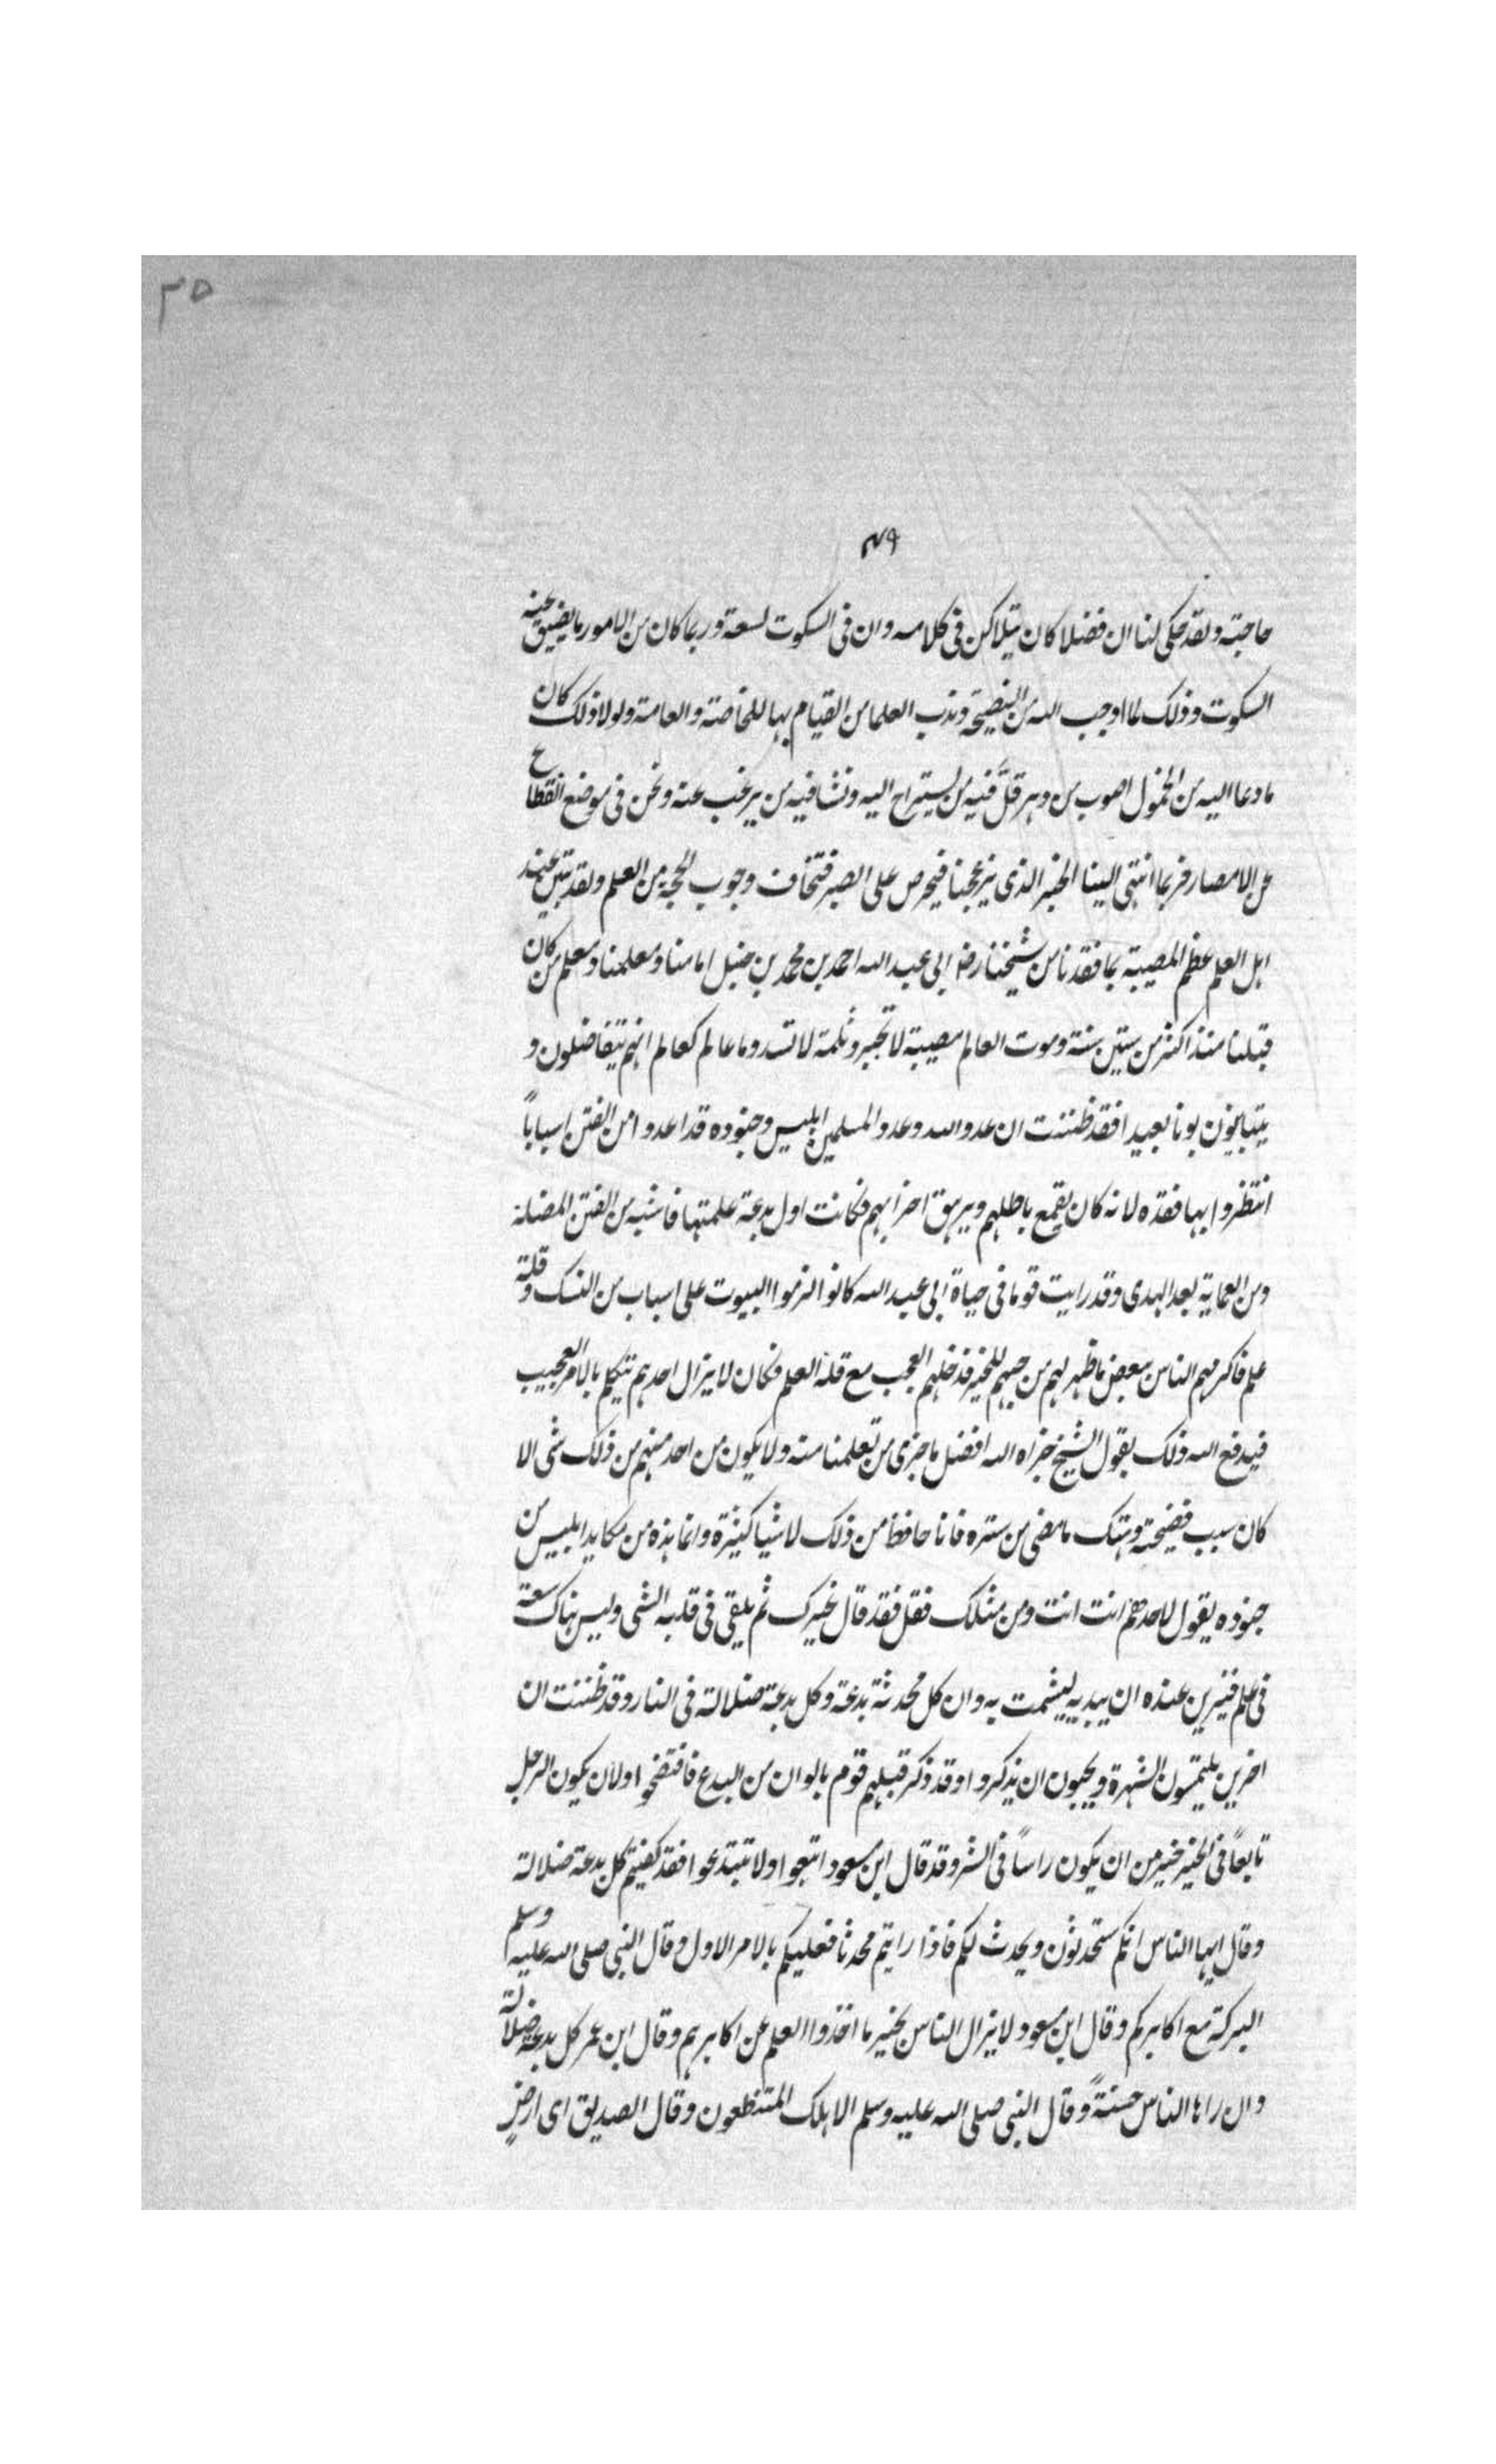 ٣٥
٤٩
حاجته ولقد حكى لنا ان فضلا كان يتلاكن فى كلامه وان فى السكوت لسعة وربما كان من الامور ما يضيق عنه
السكوت وذلك لما اوجب الله من النصيحة وندب العلما من القيام بها للخاصة والعامة ولولا ذلك كان
ما دعا اليه من الخمول اصوب من دهر قلّ فيه من يستراح اليه ونشا فيه من يرغب عنه ونحن فى موضع انقطاع
عن الامصار فربما انتهى الينا الخبر الذى يزعجنا فيحرص على الصبر فتخاف وجوب الحجة من العلم ولقد تبين عند
اهل العلم عظم المصيبة بما فقدنا من شيخنا رضا ابى عبد الله احمد بن محمد بن حنبل امامنا ومعلمنا ومعلم من كان
قبلنا منذ اكثر من ستين سنة وموت العالم مصيبة لا تجبر وثلمة لا تسد وما عالم كعالم انهم يتفاضلون و
يتباينون بونا بعيدا فقد ظننت ان عدو الله وعدو المسلمين ابليس وجنوده قد اعدوا من الفتن اسباباً
انتظروا بها فقده لانه كان يقمع باطلهم ويزهق احزابهم فكانت اول بدعة علمتها فاشية من الفتن المضلة
ومن العماية بعد الهدى وقد رايت قوما فى حياة ابى عبد الله كانوا لزموا البيوت على اسباب من النسك وقلة
علم فاكرمهم الناس ببعض ما ظهر لهم من حبهم للخير فدخلهم العجب مع قلة العلم فكان لا يزال احدهم يتكلم بالامر العجيب
فيدفع الله ذلك بقول الشيخ جزاه الله افضل ما جزى من تعلمنا منه ولا يكون من احد منهم من ذلك شى الا
كان سبب فضيحته وهتك ما مضى من ستره فانا حافظ من ذلك لاشيا كثيرة وانما هذه من مكايد ابليس من
جنوده يقول لاحدهم انت انت ومن مثلك فقل فقد قال غيرك ثم يلقى فى قلبه الشى وليس هناك سعة
فى علم فيزين عنده ان يبديه ليشمت به وان كل محدثة بدعة وكل بدعة ضلالة فى النار وقد ظننت ان
اخرين يلتمسون الشهرة ويحبون ان يذكروا وقد ذكر قبلهم قوم بالوان من البدع فافتضحوا ولان يكون الرجل
تابعاً فى الخير خير من ان يكون راساً فى الشر وقد قال ابن مسعود اتبعوا ولا تبتدعوا فقد كفيتم كل بدعة ضلالة
وقال ايها الناس انكم ستحدثون ويحدث لكم فاذا رايتم محدثا فعليكم بالامر الاول وقال النبى صلى الله عليه وسلم
البركة مع اكابركم وقال ابن مسعود لا يزال الناس بخير ما اخذوا العلم عن اكابرهم وقال ابن عمر كل بدعة ضلالة
وان راها الناس حسنةً وقال النبى صلى الله عليه وسلم الا هلك المتنطعون وقال الصديق اى ارضٍ